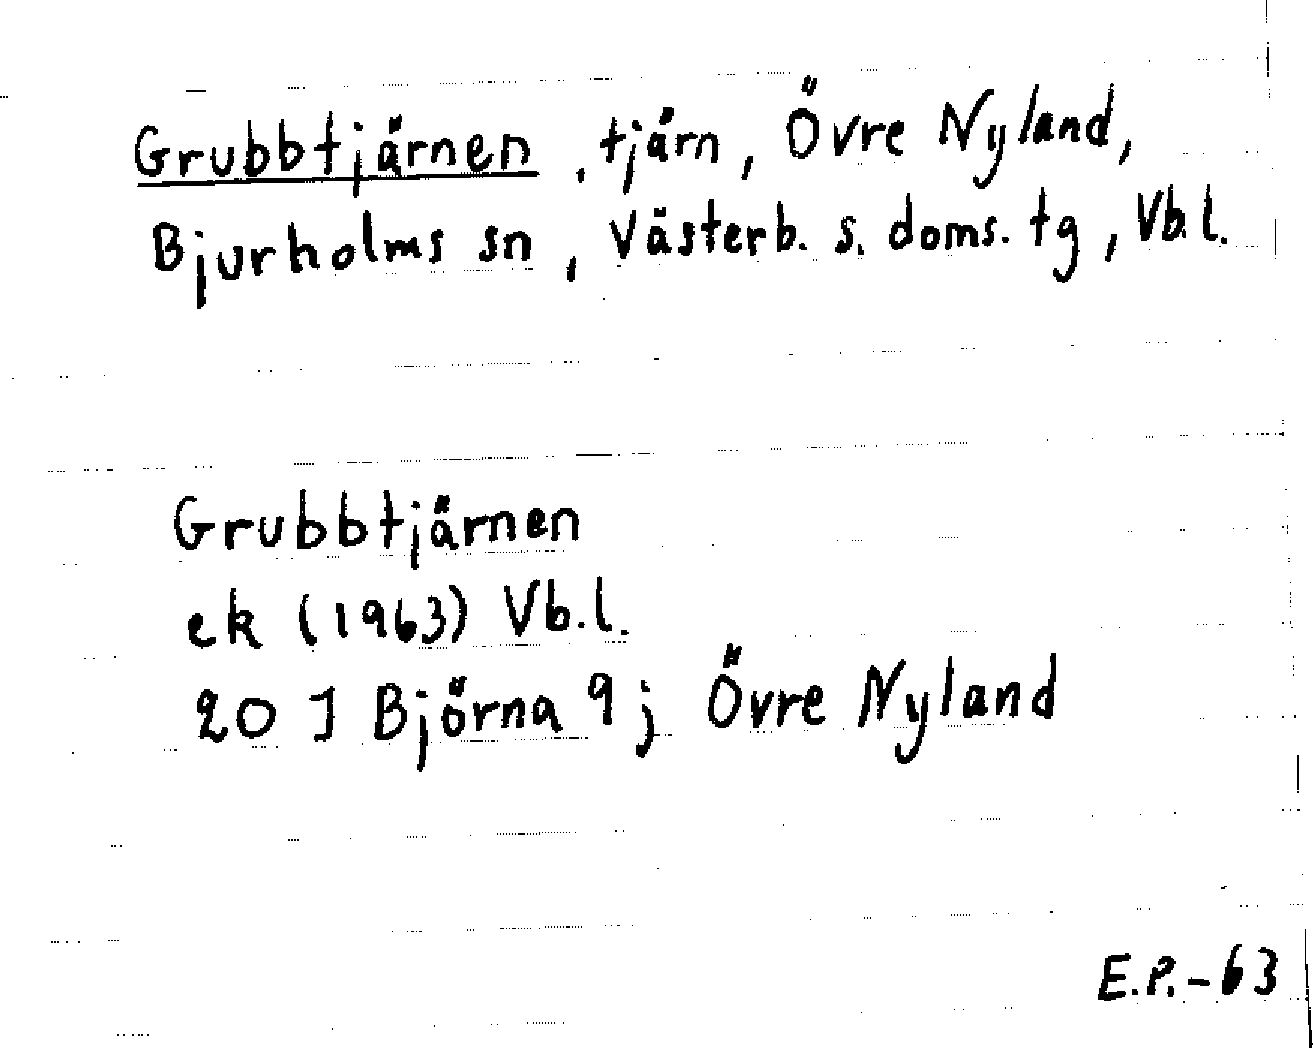 Grubbtjärnen, tjärn, Övre Nyland,
Bjurholms sn, Västerb. s. doms. tg, Vb.l.
Grubbtjärnen
ek (1963) Vb.l.
20 J Björna 9j Övre Nyland
E.P.-63